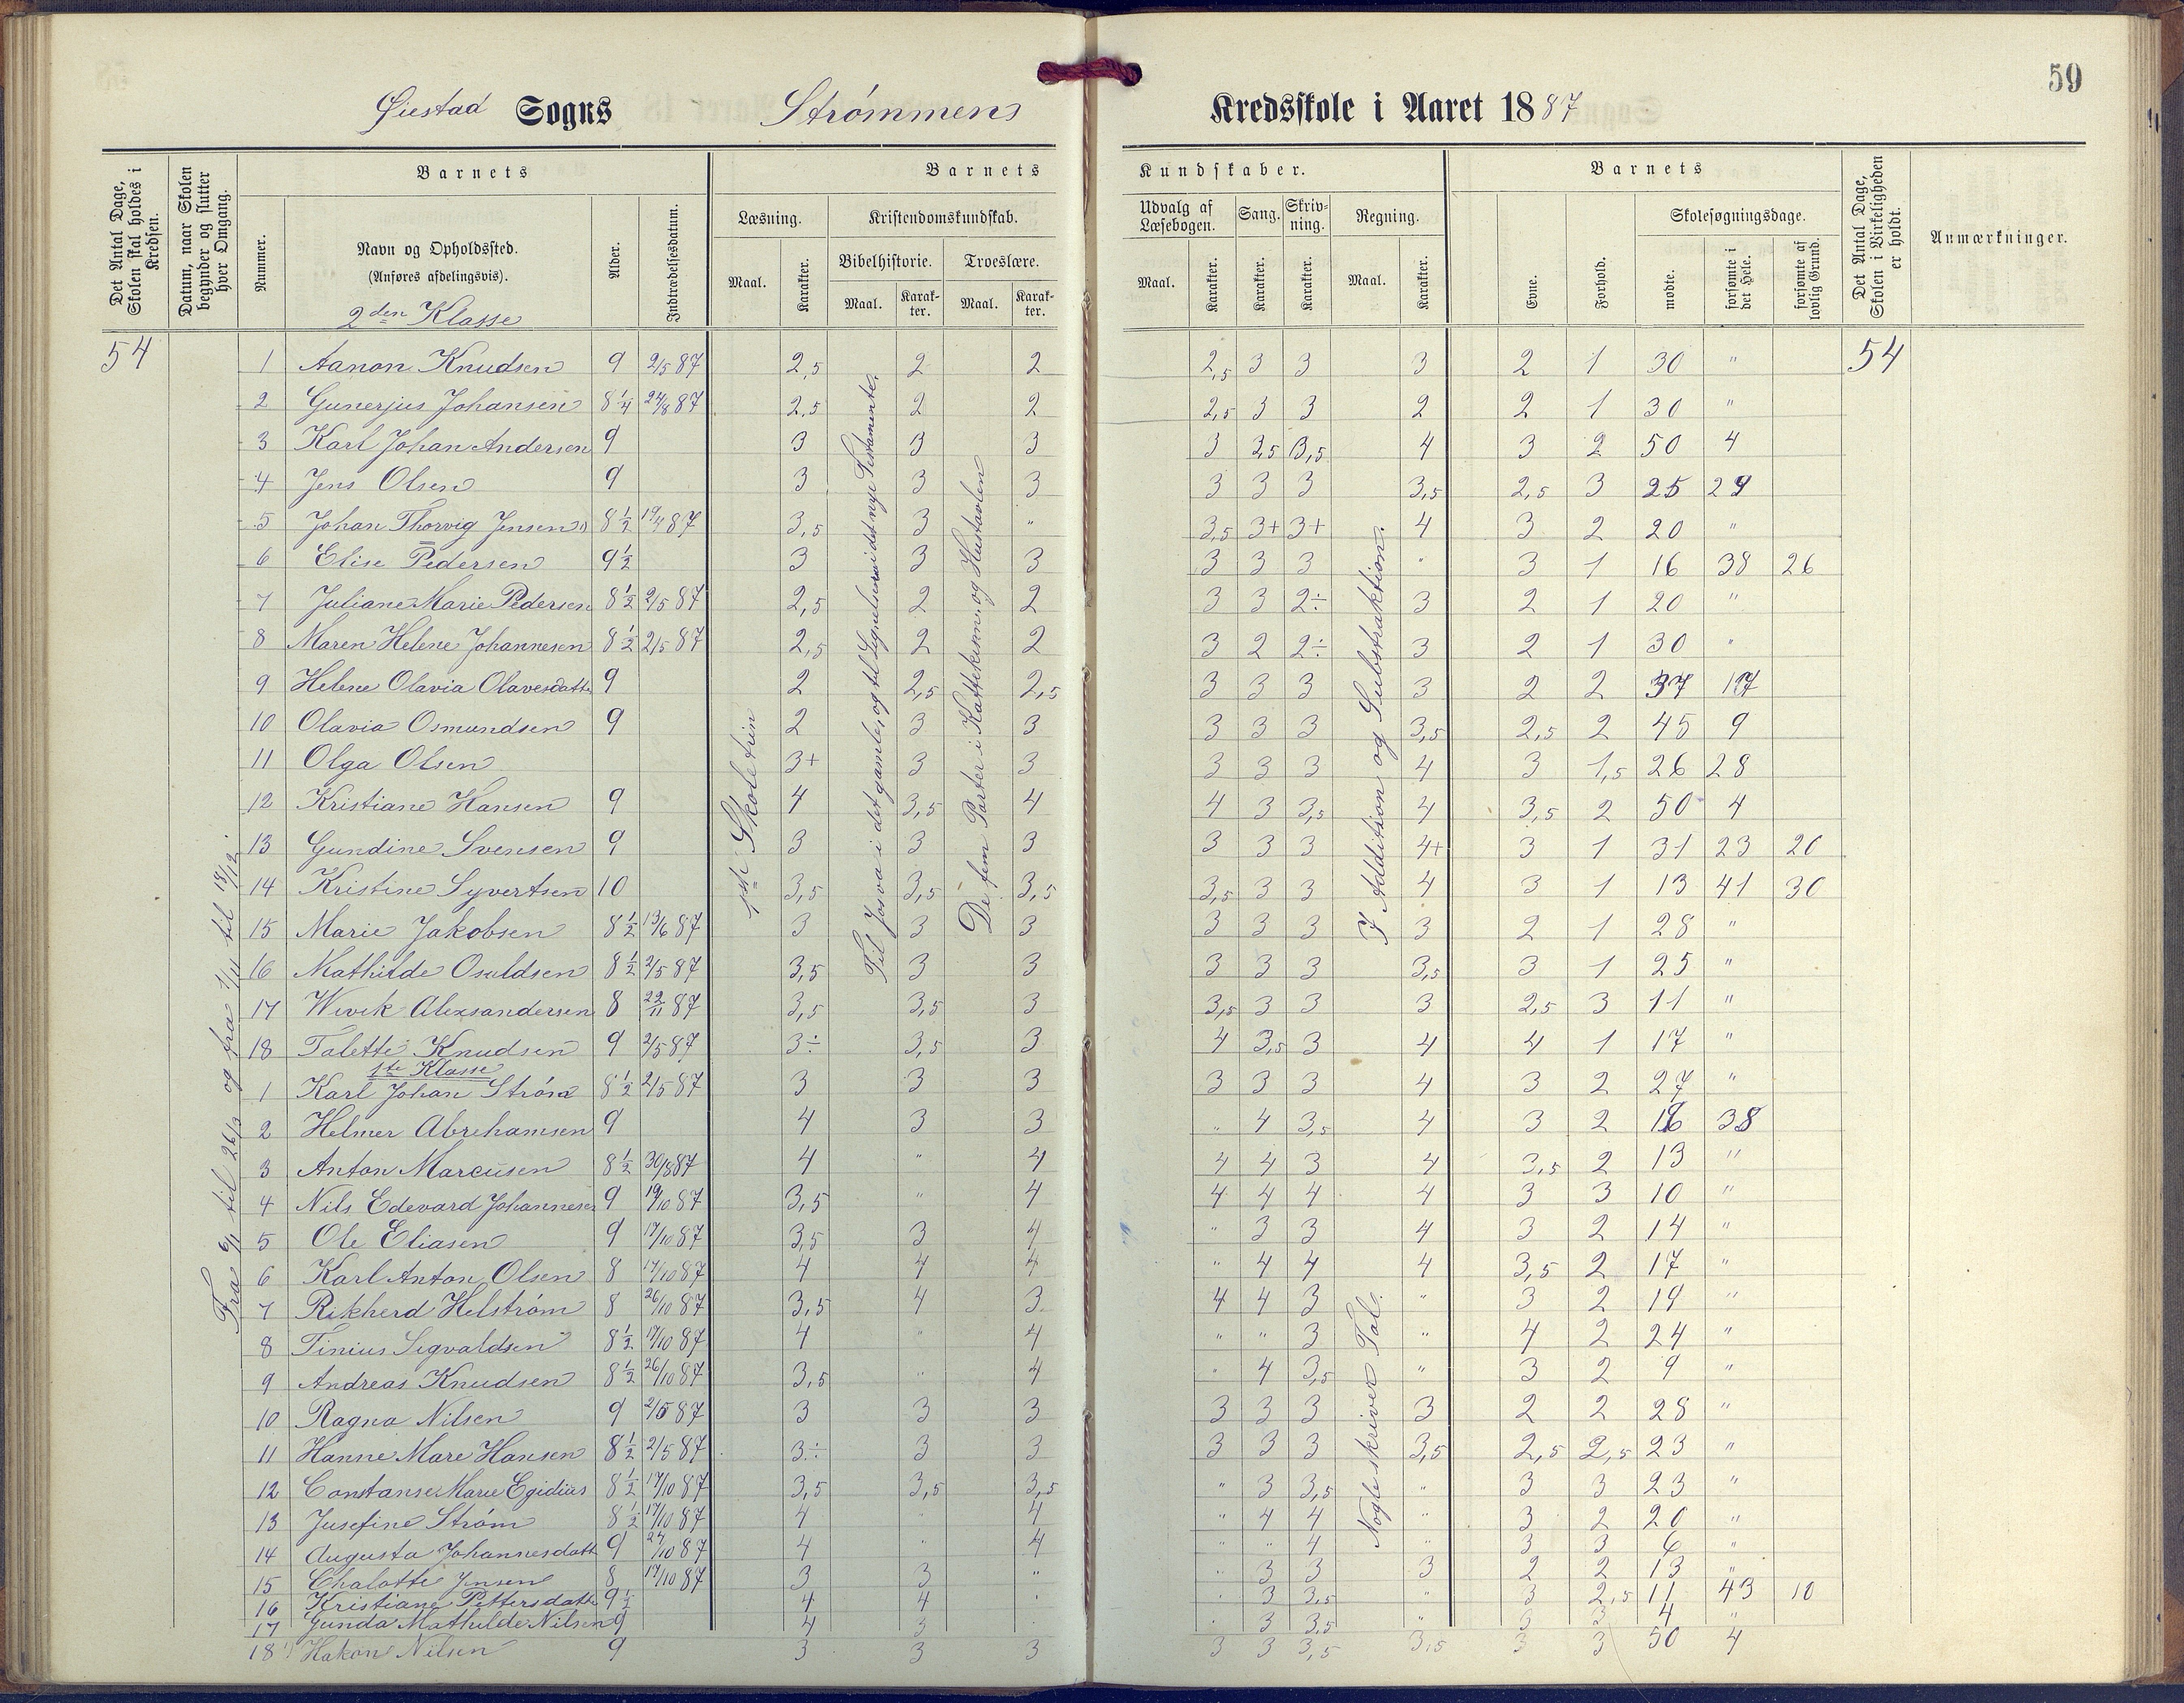 59
Øiestad Sogns Strømmens Kredsskole i Aaret 1887
Det Antal Dage, Skolen skal holdes i Kredsen.
Datum, naar Skolen begynder og slutter hver Omgang.
Barnets
Nummer.
Navn og Opholdssted.
(Anføres afdelingsvis).
Alder.
Indtrædelsesdatum.
Barnets Kundskaber.
Læsning.
Maal.
Karakter.
Kristendomskundskab.
Bibelhistorie.
Maal.
Karakter.
Troeslære.
Maal.
Karakter.
Udvalg af Læsebogen.
Maal.
Karakter.
Sang.
Karakter.
Skrivning.
Karakter.
Regning.
Maal.
Karakter.
Barnets
Evne.
Forhold.
Skolesøgningsdage.
mødte.
forsømte i det Hele.
forsømte af lovlig Grund.
Det Antal Dage, Skolen i Virkeligheden er holdt.
Anmærkninger.
2den Klasse
54 1 Aanon Knudsen 9 2/5 87 2,5 2 2 2,5 3 3 3 2 1 30 " 54
2 Gunerjus Johansen 8 1/4 24/8 87 2,5 2 2 2,5 3 3 2 2 1 30 "
3 Karl Johan Andersen 9 3 3 3 3 2,5 3,5 4 3 2 50 4
4 Jens Olsen 9 3 3 3 3 3 3 3,5 2,5 3 25 29
5 Johan Thorvig Jensen 8 1/2 19/4 87 3,5 3 " 3,5 3+ 3+ 4 3 2 20 "
6 Elise Pedersen 9 1/2 3 3 3 3 3 3 " 3 1 16 38 26
7 Juliane Marie Pedersen 8 1/2 2/5 87 2,5 2 2 3 3 2÷ 3 2 1 20 "
8 Maren Helene Johannesen 8 1/2 2/5 87 2,5 2 2 3 2 2÷ 3 2 1 30 "
9 Helene Olavia Olavesdatte 9 2 2,5 2,5 3 3 3 3 2 2 37 17
10 Olavia Osmundsen 9 2 3 3 3 3 3 3,5 2,5 2 45 9
11 Olga Olsen 3+ 3 3 3 3 3 4 3 1,5 26 28
12 Kristiane Hansen 9 4 3,5 4 4 3 3,5 4 3,5 2 50 4
13 Gundine Svensen 9 3 3 3 3 3 3 4+ 3 1 31 23 20
14 Kristine Syvertsen 10 3,5 3,5 3,5 3,5 3 3 4 3 1 13 41 30
15 Marie Jakobsen 8 1/2 13/6 87 3 3 3 3 3 3 3 2 1 28 "
16 Mathilde Osuldsen 8 1/2 2/5 87 3,5 3 3 3 3 3 3,5 3 1 25 "
17 Wivik Alexsandersen 8 22/11 87 3,5 3,5 3 3,5 3 3 3 2,5 3 11 "
18 Talette Knudsen 9 2/5 87 3÷ 3,5 3 4 3,5 3 4 4 1 17 "
1ste Klasse
1 Karl Johan Strøm 8 1/2 2/5 87 3 3 3 3 3 3 4 3 2 27 "
2 Helmer Abrehamsen 9 4 3 3 " 4 3,5 4 3 2 16 38
3 Anton Marcusen 8 1/2 30/8 87 4 " 4 4 4 3 4 3,5 2 13 "
4 Nils Edevard Johannesen 9 19/10 87 3,5 " 4 4 4 4 4 3 3 10 "
5 Ole Eliasen 9 17/10 87 3,5 3 4 " 3 3 4 3 2 14 "
6 Karl Anton Olsen 8 17/10 87 4 4 4 " 4 4 4 3,5 2 17 "
7 Rikherd Helstrøm 8 26/10 87 3,5 4 3 4 4 3 " 3 2 19 "
8 Tinius Sigvaldsen 8 1/2 17/10 87 4 " 4 " " 3 " 4 2 24 "
9 Andreas Knudsen 8 1/2 26/10 87 3,5 " 4 " 4 3,5 " 3 2 9 "
10 Ragna Nilsen 9 2/5 87 3 3 3 3 3 3 3 2 2 28 "
11 Hanne Mare Hansen 8 1/2 2/5 87 3÷ 3 3 3 3 3 3,5 2,5 2,5 23 "
12 Constanse Marie Egidius 8 1/2 17/10 87 3,5 3,5 3,5 " 3 3,5 " 3 3 23 "
13 Jusefine Strøm 8 1/2 17/10 87 4 " 4 " 4 4 " 3 2 20 "
14 Augusta Johannesdatt 9 24/10 87 4 " 4 " " 4 " 3 3 6 "
15 Chalotte Jensen 8 17/10 87 3 3 " " 3 3 3 2 2 13 "
16 Kristiane Pettersdatte 9 1/2 4 4 " " 3 3,5 " 3 2,5 11 43 10
17 Gunda Mathilde Nilsen 9 4 3 " " 3 3,5 " 3 3 4 "
18 Hakon Nilsen 9 3 3 3 3 3 3,5 3,5 3 3 50 4
og fra 1/11 til 18/12.
1ste Skoletrin
Til Josva i det gamle, og til Lignelserne i det nye Testamente.
De fem Parter i Kattekism. og Hustavlen
I Addition og Substraktion.
Nogle skriver Tal.